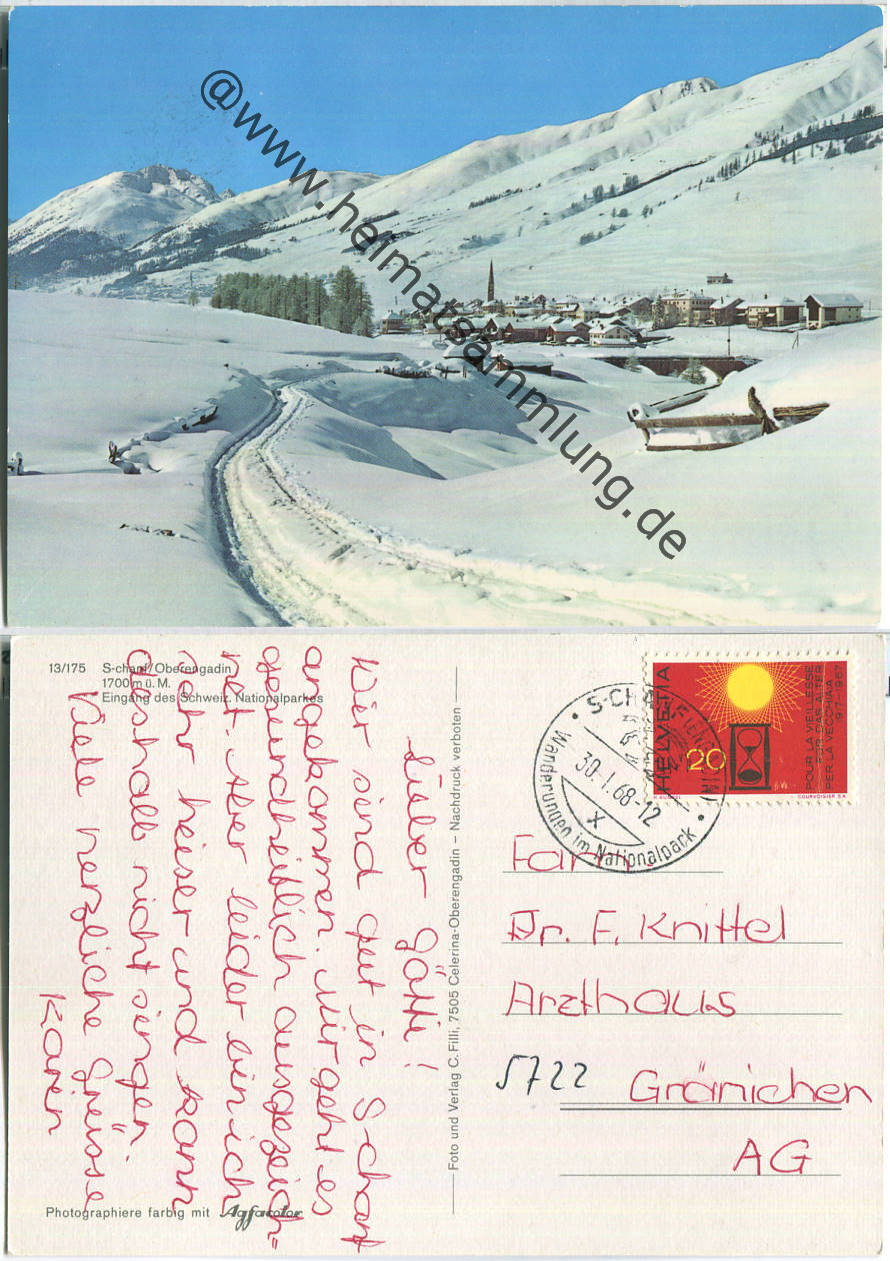 @www.heimatsammlung.de
13/175 S-chanf/Oberengadin
1700 m ü. M.
Eingang des Schweiz. Nationalparkes
Lieber Götti!
Wir sind gut in S-chanf
angekommen. Mir geht es
gesundheitlich ausgezeich=
net. Aber leider bin ich
sehr heiser und kann
deshalb nicht singen.
Viele herzliche Grüsse
Karin
Photographiere farbig mit Agfacolor
Foto und Verlag C. Filli, 7505 Celerina-Oberengadin – Nachdruck verboten
S-CHANF (ENGADIN)
30.I.68-12
X
Wanderungen im Nationalpark
HELVETIA
20
POUR LA VIEILLESSE
FÜR DAS ALTER
PER LA VECCHIAIA
1917-1967
COURVOISIER S.A.
Fam.
Dr. F. Knittel
Arzthaus
5722 Gränichen
AG